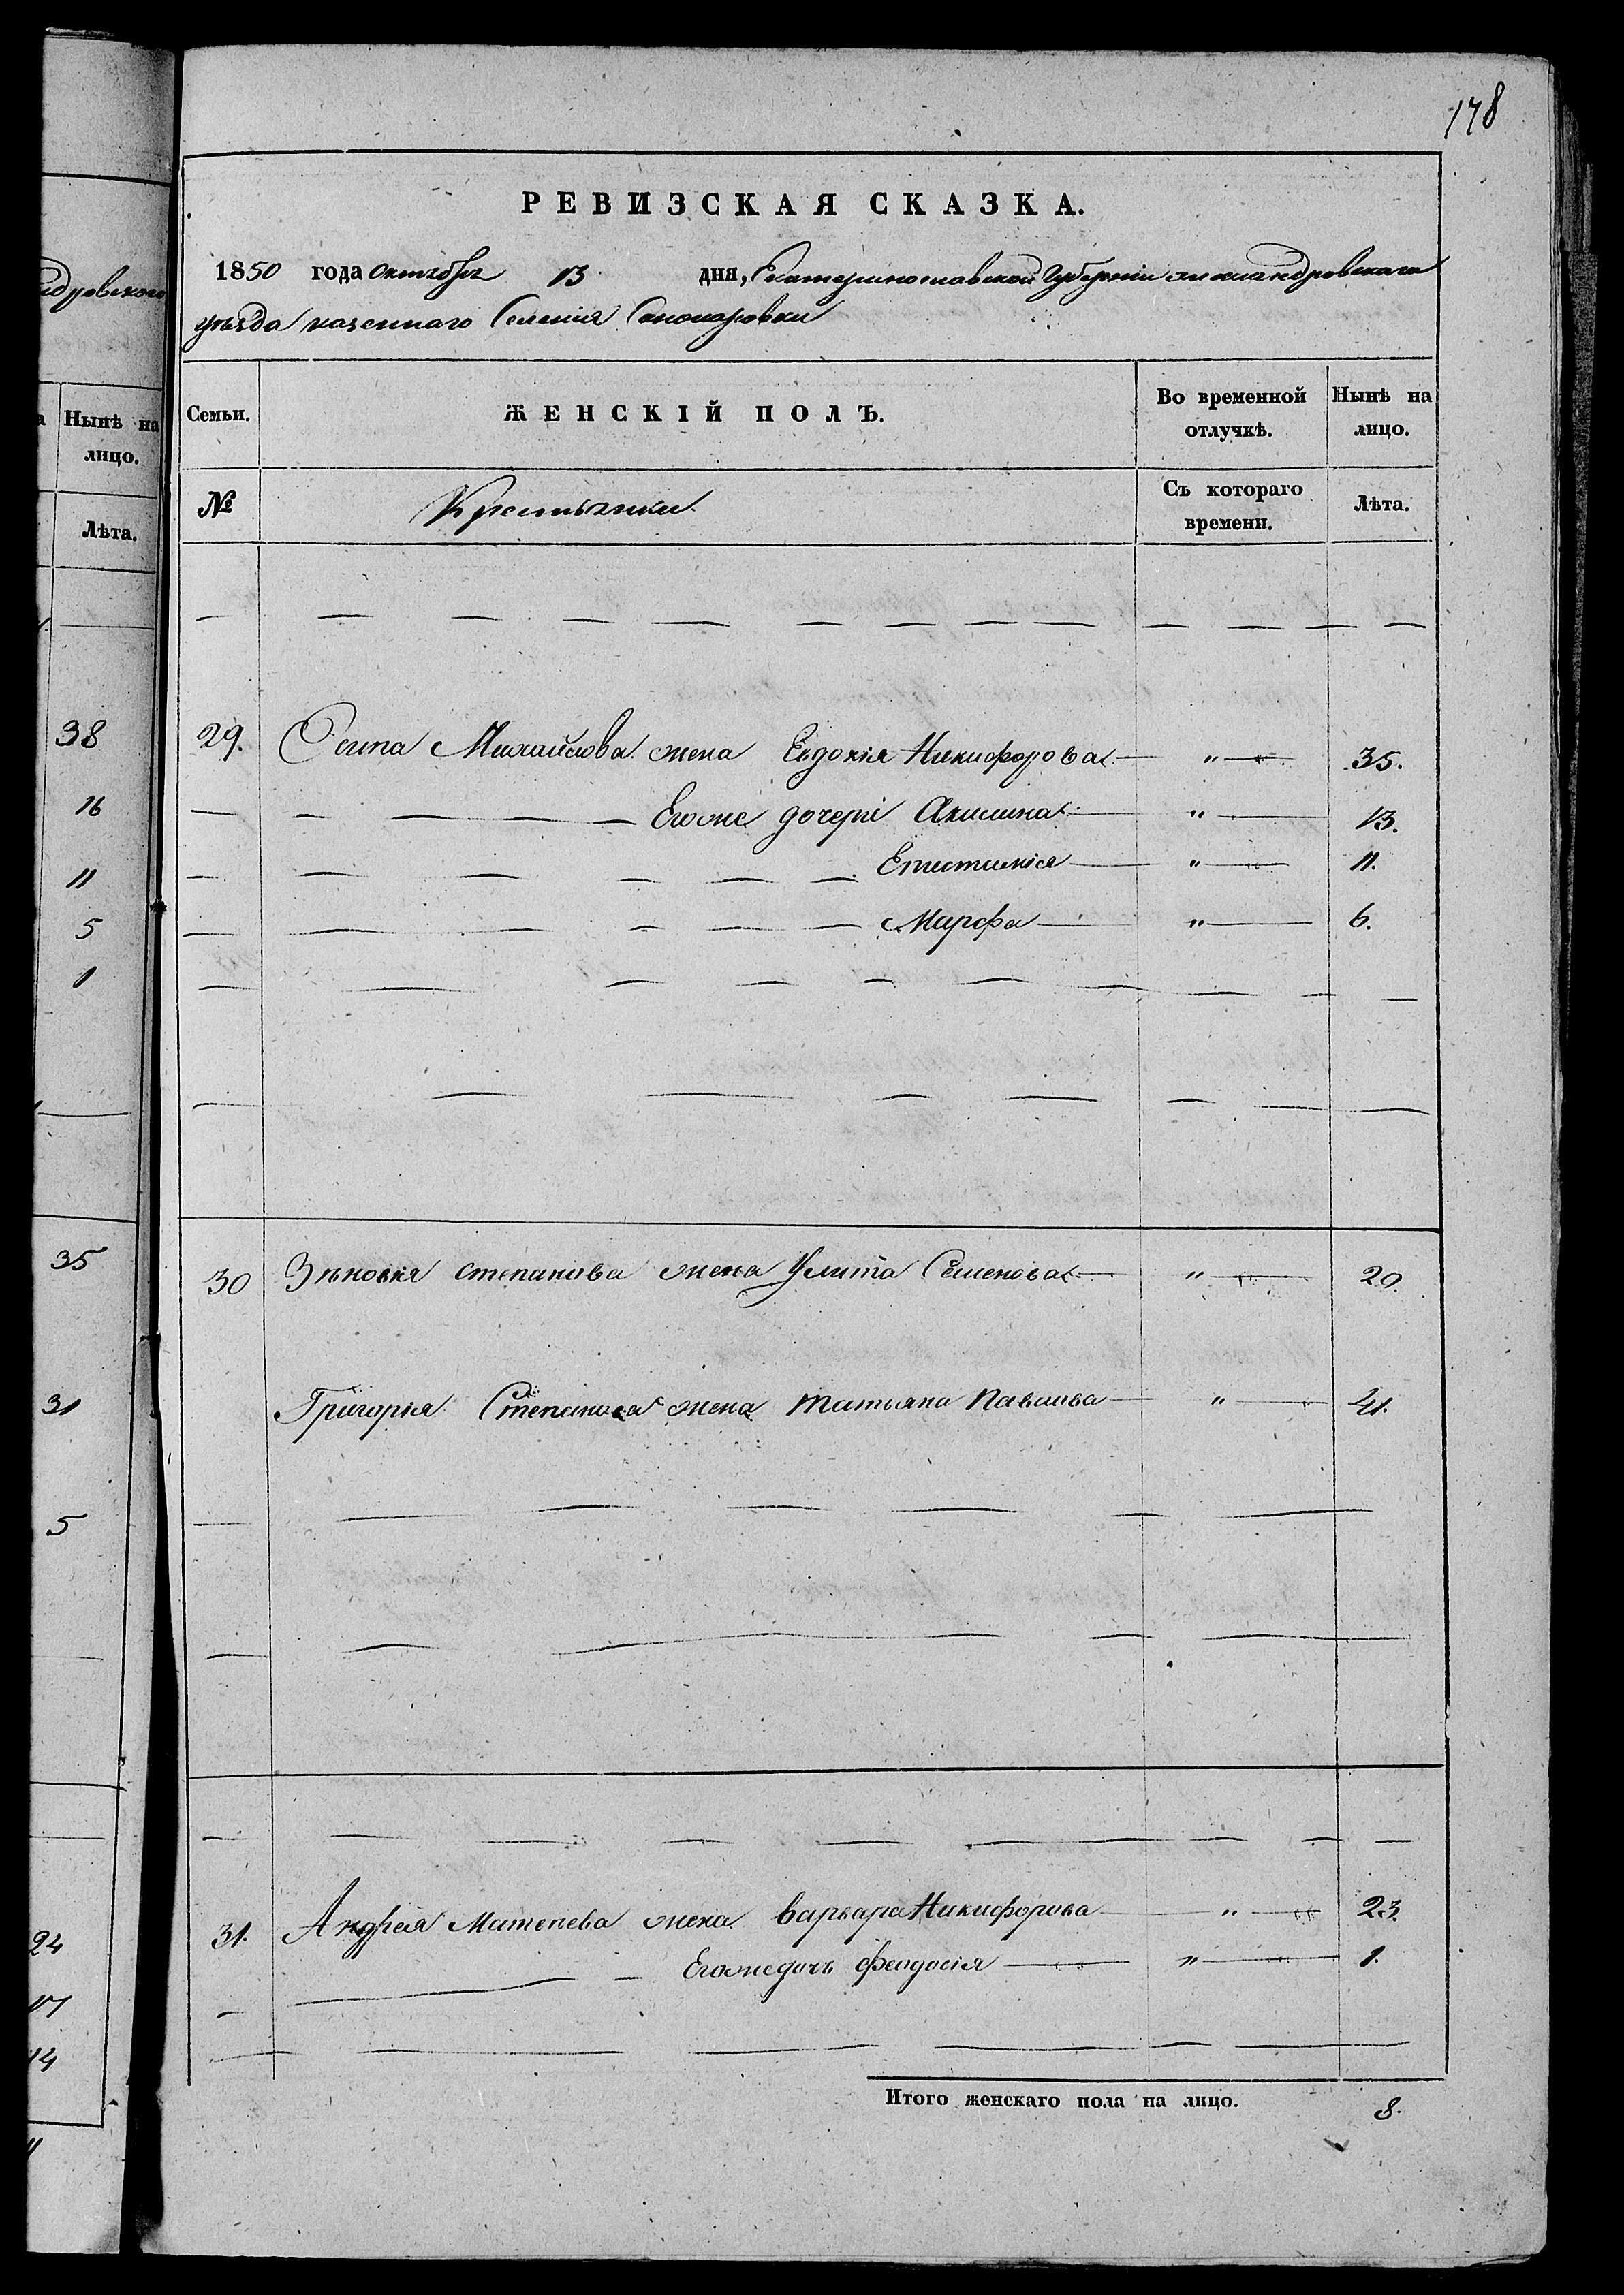 178
РЕВИЗСКАЯ СКАЗКА.
1850 года Октября 13 дня, Екатеринославской Губерніи Александровскаго
уѣзда казеннаго Селенія
Семьи. ЖЕНСКІЙ ПОЛЪ. Во временной отлучкѣ. Нынѣ на лицо.
№ Крестьянки Съ котораго времени. Лѣта.
29. Осипа Михайлова жена Евдокія Никифорова " 35.
Егоже дочери Акилина " 13.
Епистимія " 11.
Марфа " 6.
30 Зѣновія Степанова жена Улита Семенова " 20.
Григорія Степанова жена Татьяна Павлова " 41.
31. Андрея Матвеева жена Варвара Никифорова " 23.
Егоже дочь Феодосія " 1.
Итого женскаго пола на лицо. 8.
ндровскаго
Нынѣ на
лицо.
Лѣта.
38
16
11
5
1
35
31
5
24
17
14